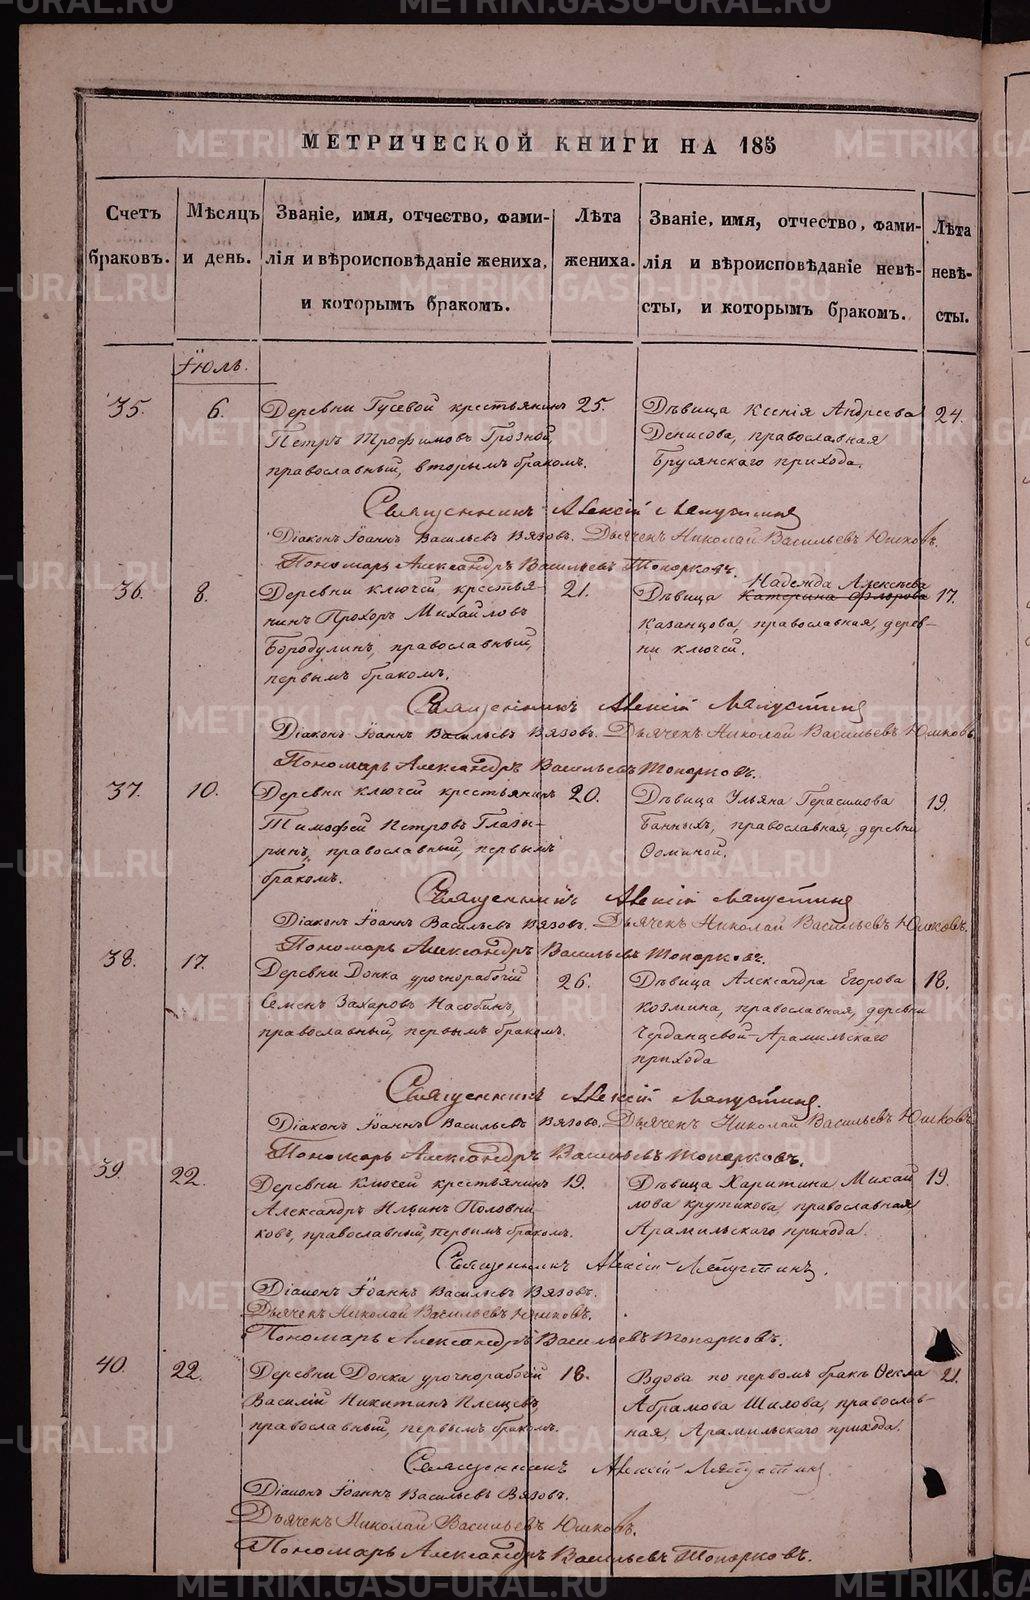 МЕТРИЧЕСКОЙ КНИГИ НА 185
Счетъ браковъ.
Мѣсяцъ и день.
Званіе, имя, отчество, фами-
лія и вѣроисповѣданіе жениха,
и которымъ бракомъ.
Лѣта жениха.
Званіе, имя, отчество, фами-
лія и вѣроисповѣданіе невѣ-
сты, и которымъ бракомъ.
Лѣта невѣ-
сты.
Іюль.
35. 6. Деревни Гусевой крестьянинъ 25. Дѣвица Ксенія Андреева 24.
Петръ Трофимовъ Грозной, Денисова, православная
православный, вторымъ бракомъ. Брусянскаго прихода.
Священникъ Алексій Ляпустинъ
Діаконъ Іоаннъ Васильевъ Вязовъ. Дьячекъ Николай Васильевъ Юшковъ.
Пономарь Александръ Васильевъ Топорковъ.
Надежда Алексѣева
36. 8. Деревни Ключей крестья- 21. Дѣвица Катерина Флорова 17.
нинъ Прохоръ Михайловъ Казанцова, православная, дерев-
Бородулинъ, православный, ни Ключей.
первымъ бракомъ.
Священникъ Алексій Ляпустинъ
Діаконъ Іоаннъ Васильевъ Вязовъ. Дьячекъ Николай Васильевъ Юшковъ
Пономарь Александръ Васильевъ Топорковъ.
37. 10. Деревни Ключей крестьянинъ 20. Дѣвица Ульяна Герасимова 19.
Тимофей Петровъ Глазы- Банныхъ, православная, деревни
ринъ, православный, первымъ Ѳоминой.
бракомъ.
Священникъ Алексій Ляпустинъ
Діаконъ Іоаннъ Васильевъ Вязовъ. Дьячекъ Николай Васильевъ Юшковъ.
Пономарь Александръ Васильевъ Топорковъ.
38. 17. Деревни Донка урочнорабочій 26. Дѣвица Александра Егорова 18.
Семенъ Захаровъ Насобинъ, Козмина, православная, деревни
православный, первымъ бракомъ. Черданцевой Арамильскаго
прихода
Священникъ Алексій Ляпустинъ.
Діаконъ Іоаннъ Васильевъ Вязовъ. Дьячекъ Николай Васильевъ Юшковъ
Пономарь Александръ Васильевъ Топорковъ.
39. 22. Деревни Ключей крестьянинъ 19. Дѣвица Харитина Михай 19.
Александръ Ильинъ Половни лова Крутикова, православная,
ковъ, православный, первымъ бракомъ. Арамильскаго прихода.
Священникъ Алексій Ляпустинъ.
Діаконъ Іоаннъ Васильевъ Вязовъ.
Дьячекъ Николай Васильевъ Юшковъ.
Пономарь Александръ Васильевъ Топорковъ.
40. 22. Деревни Донка урочнорабочій 18. Вдова по первомъ бракѣ Ѳекла 21.
Василій Никитинъ Плещевъ, Абрамова Шилова, православ-
православный, первымъ бракомъ. ная, Арамильскаго прихода.
Священникъ Алексій Ляпустинъ.
Діаконъ Іоаннъ Васильевъ Вязовъ.
Дьячекъ Николай Васильевъ Юшковъ.
Пономарь Александръ Васильевъ Топорковъ.
METRIKI.GASO-URAL.RU